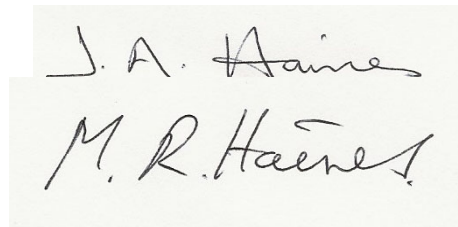 J. A. Haines
M. R. Haines.